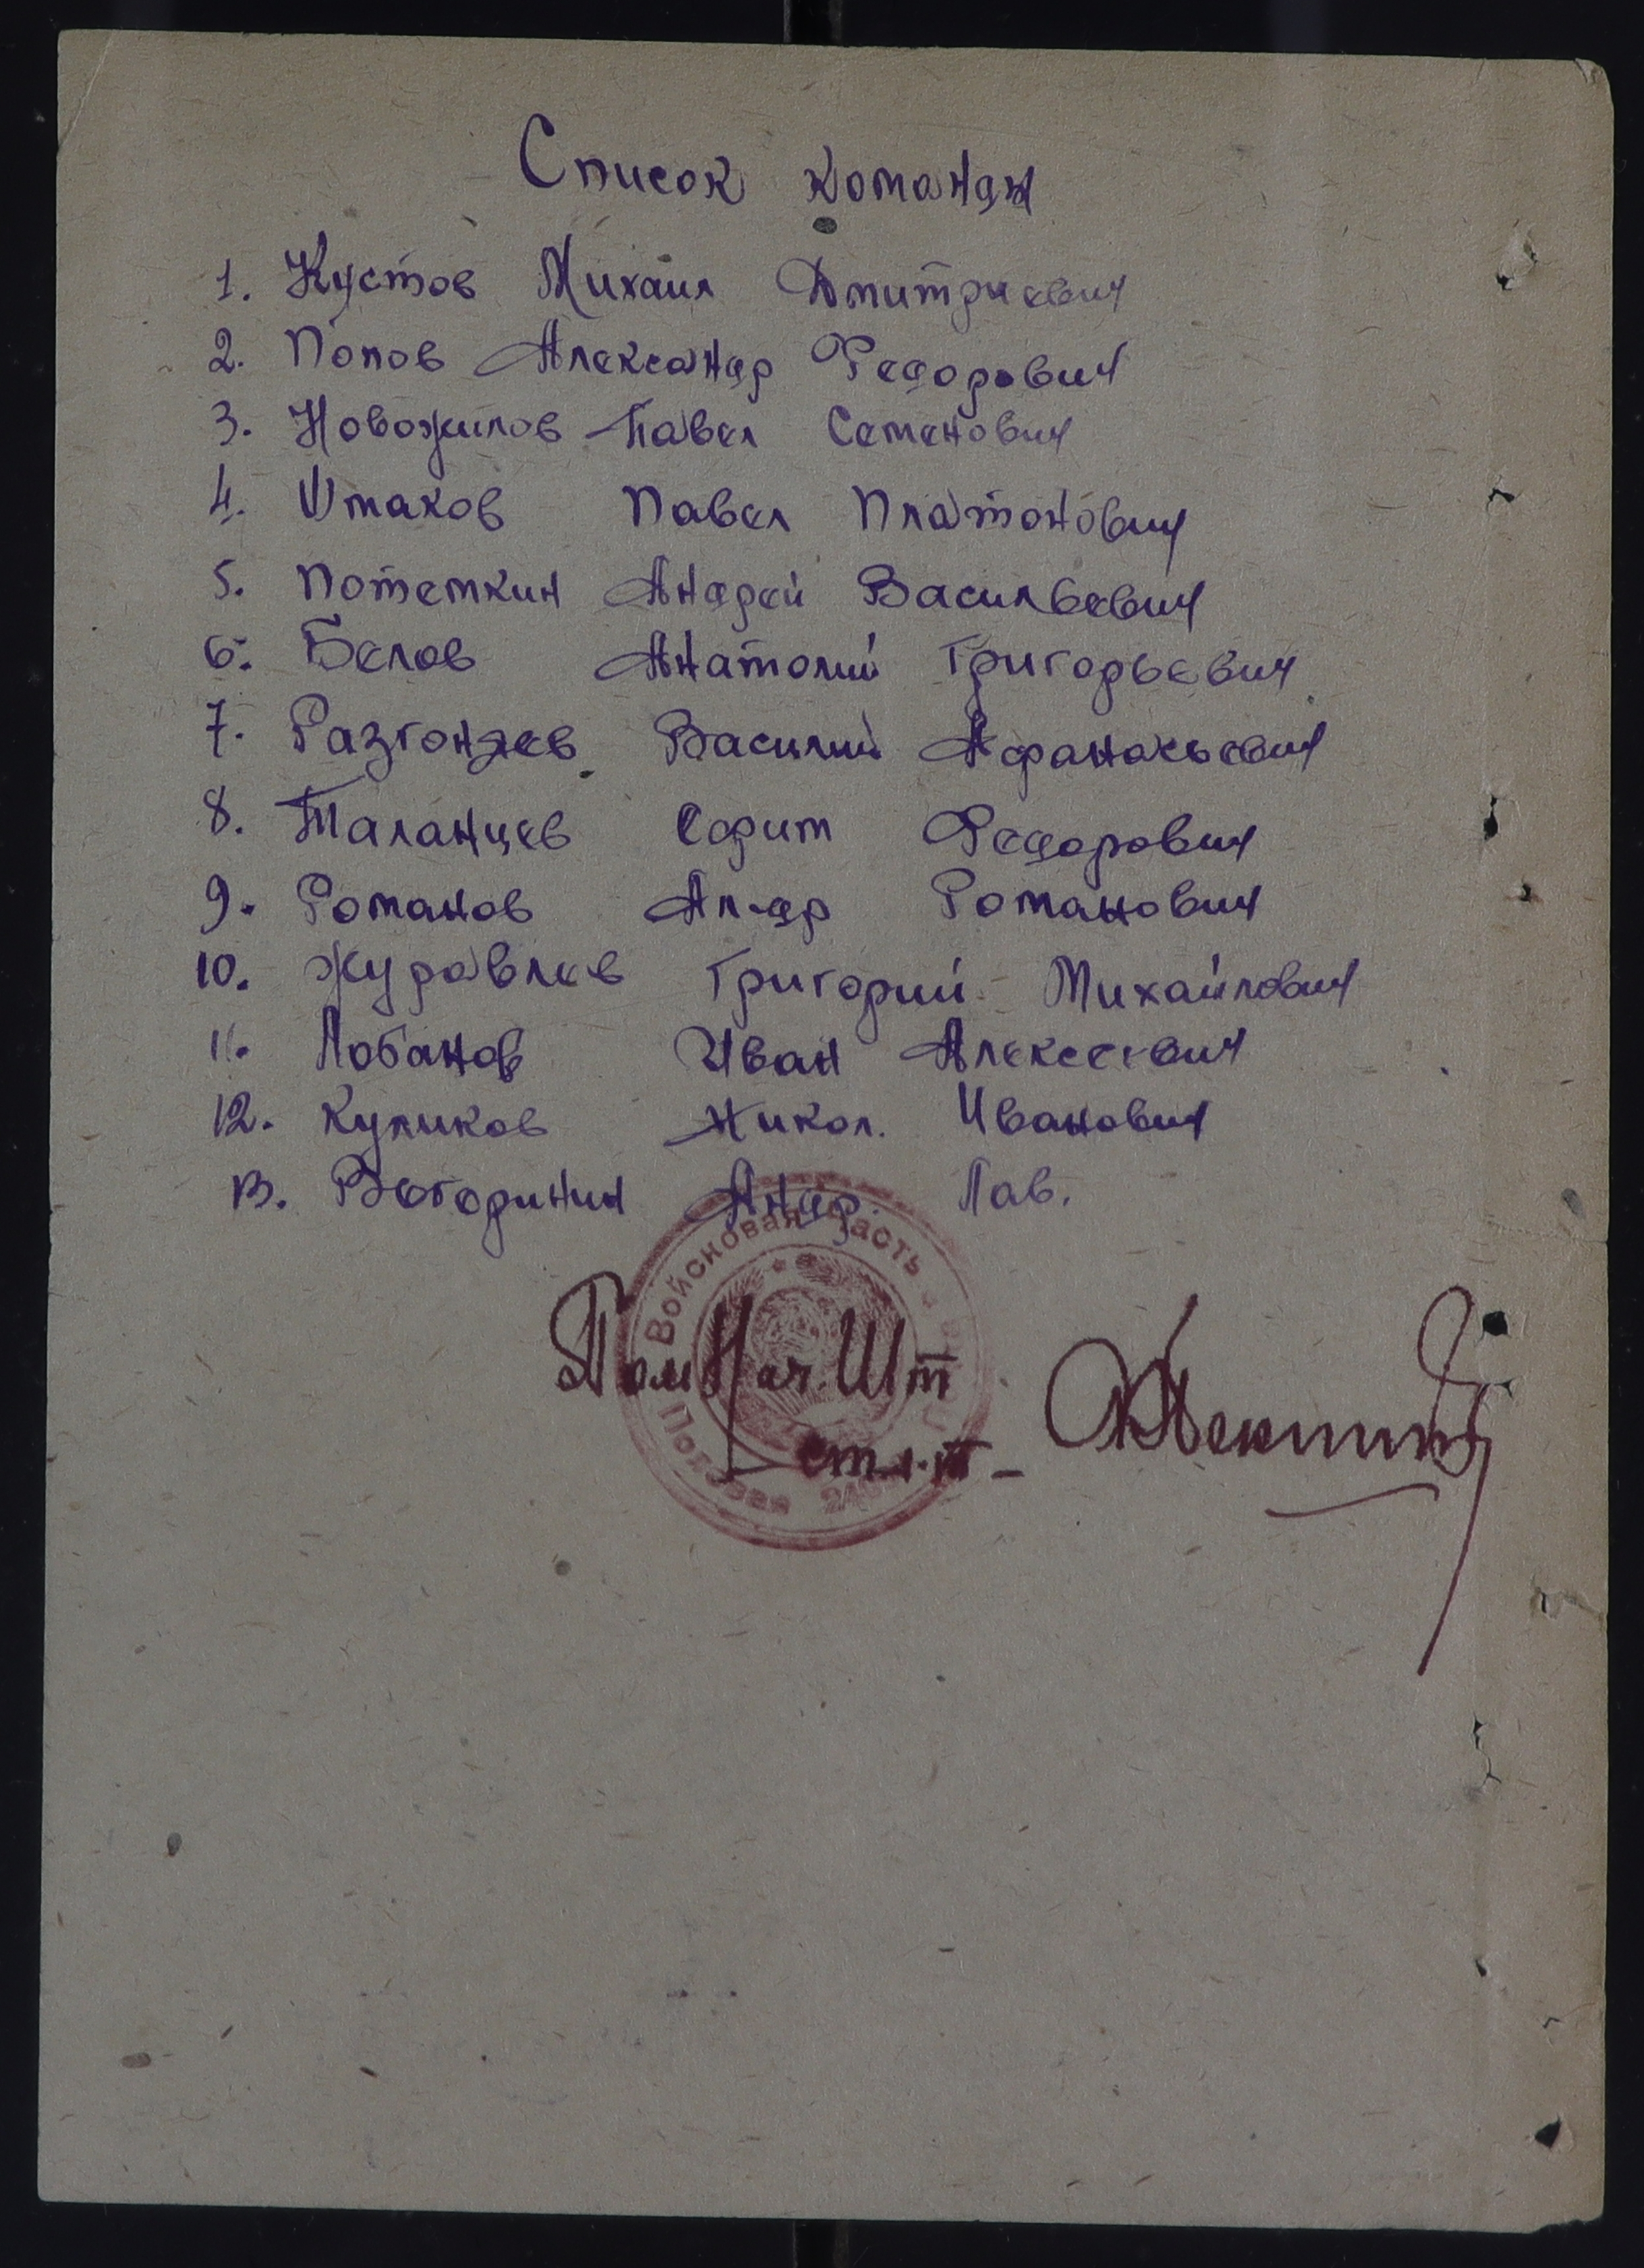 Список команды
1. Кустов Михаил Дмитриевич
2. Попов Александр Федорович
3. Новожилов Павел Семенович
4. Шмаков Павел Платонович
5. Потемкин Андрей Васильевич
6. Белов Анатолий Григорьевич
7. Разгоняев Василий Афанасьевич
8. Таланцев Ефим Федорович
9. Романов Ал-др Романович
10. Журавлев Григорий Михайлович
11. Лобанов Иван Алексеевич
12. Куликов Никол. Иванович
13. Андр. Пав.
Войсковая часть
Полевая
Пом Нач. Шт
ст. л-т -